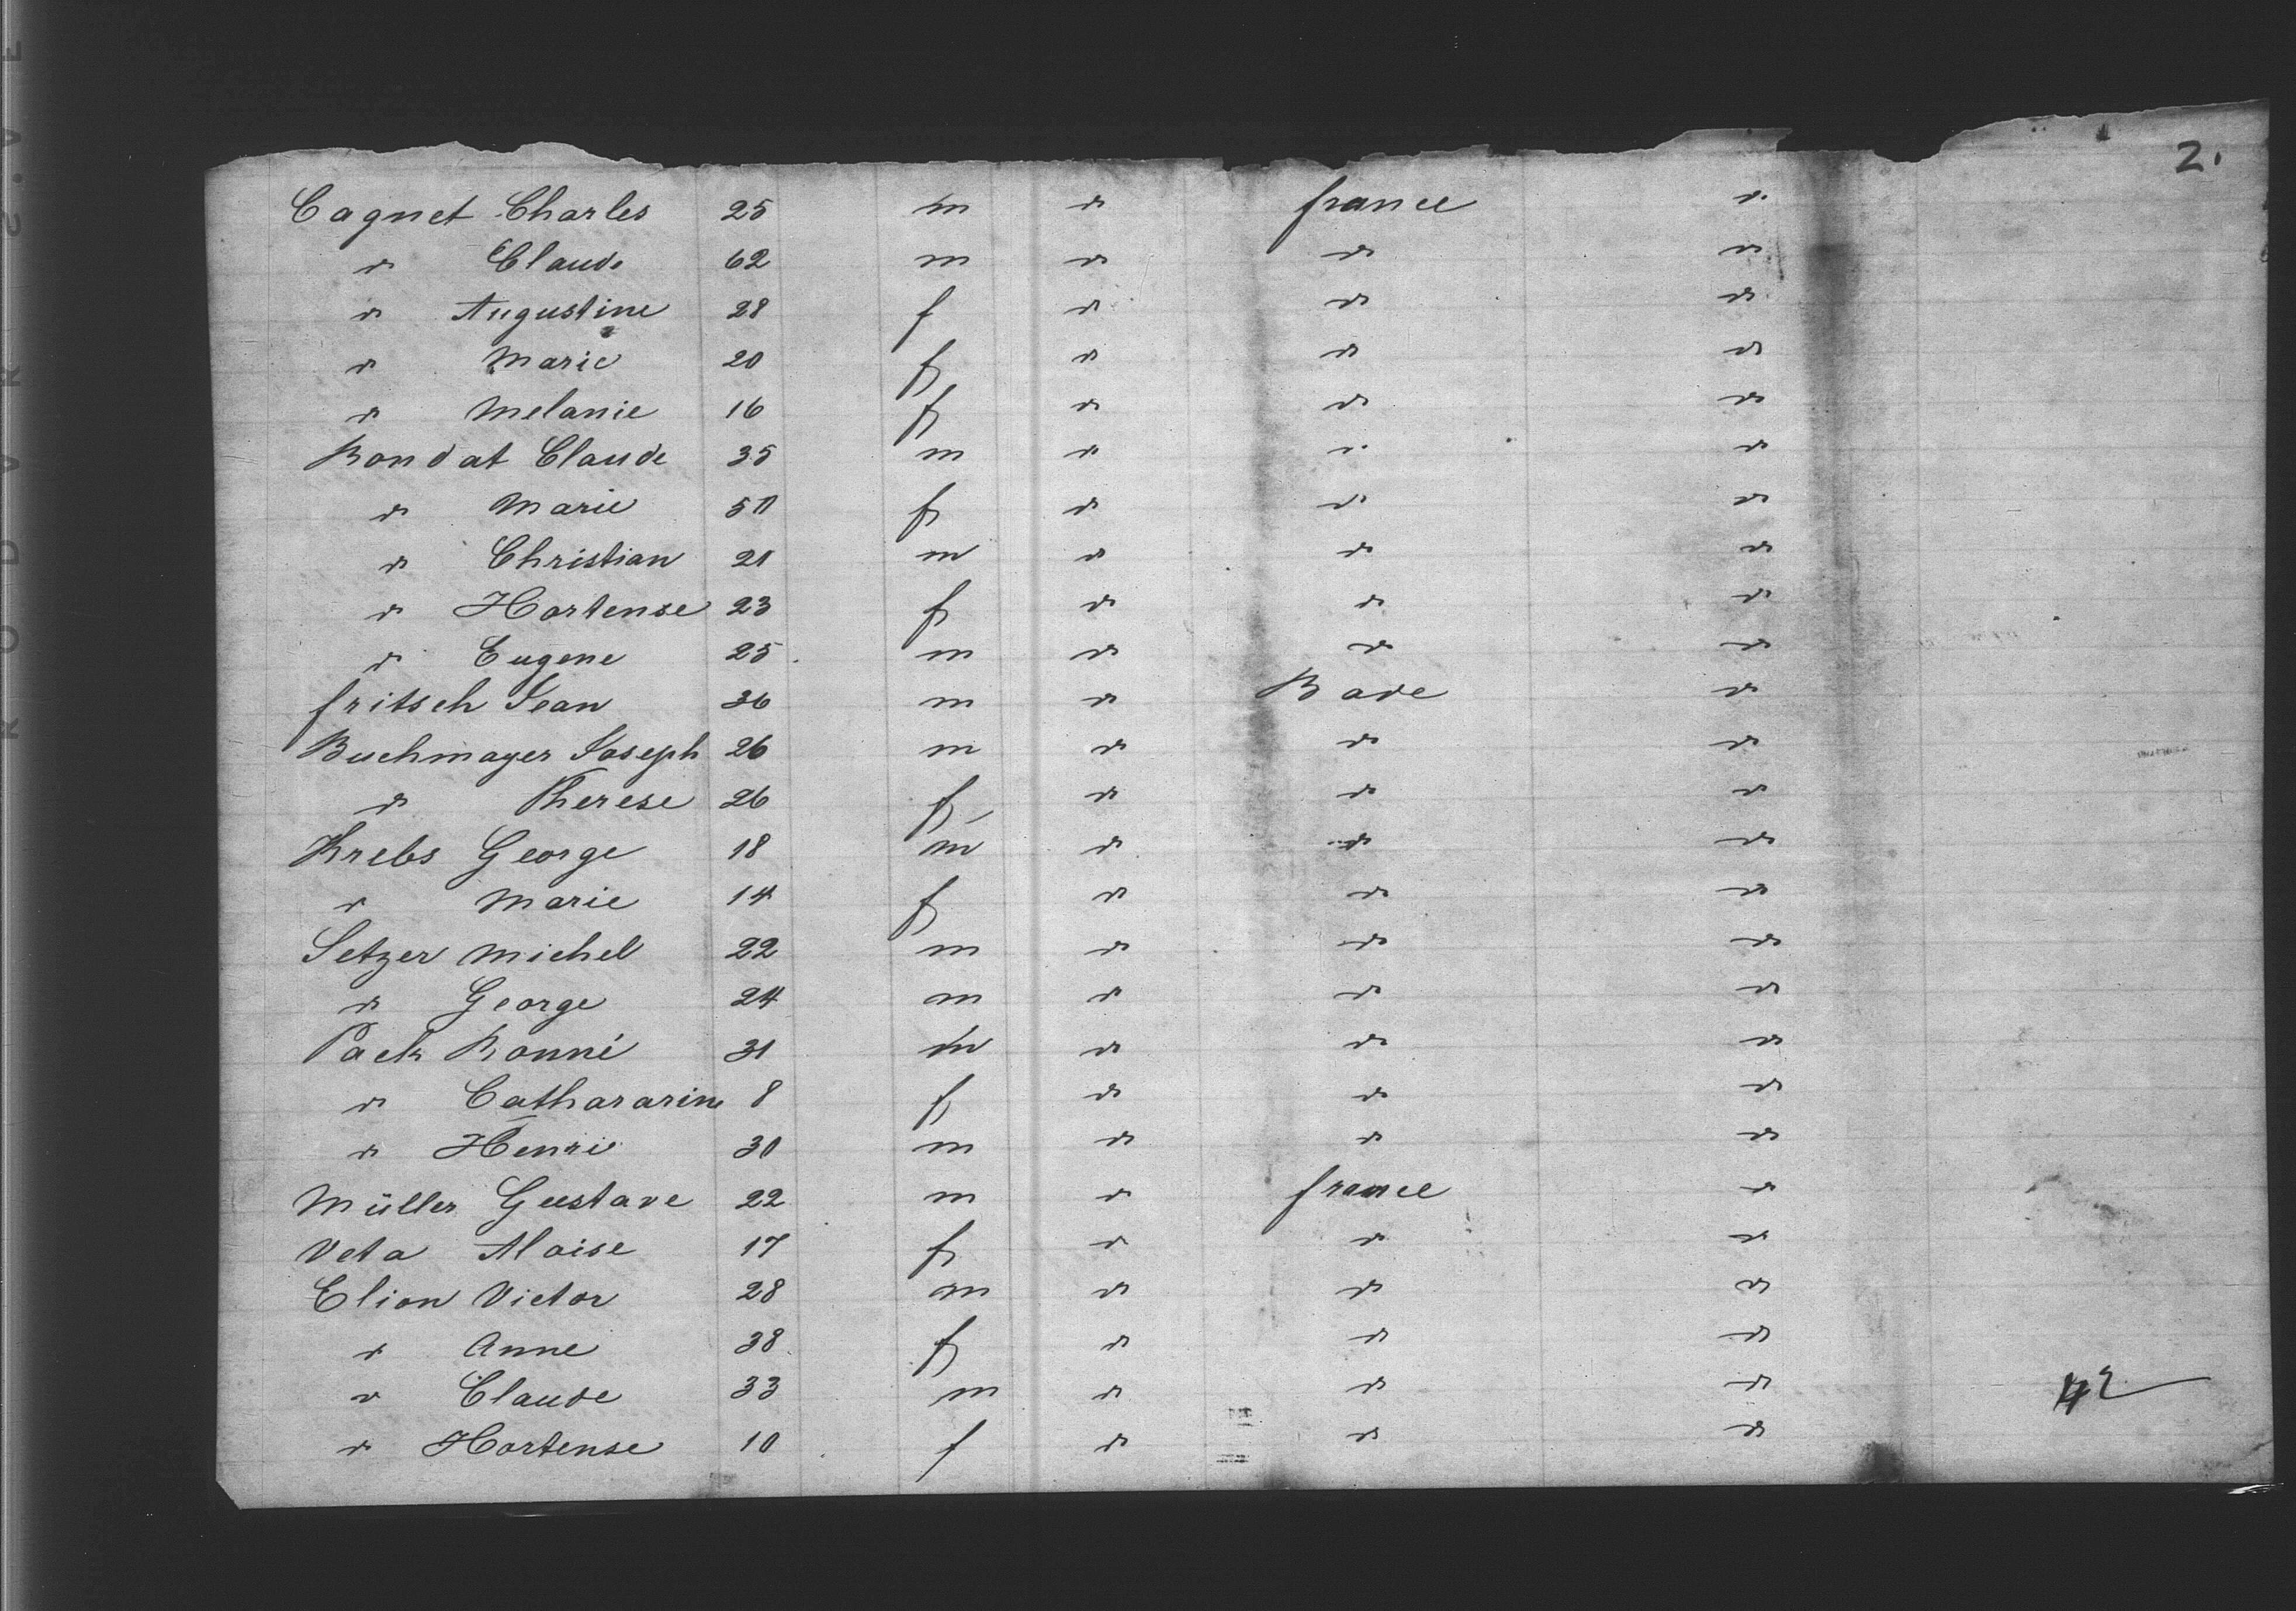 2.
Cagnet Charles 25 m d° france d°
d° Claude 62 m d° d° d°
d° Augustine 28 f d° d° d°
d° Marie 20 f d° d° d°
d° Melanie 16 f d° d° d°
Rondat Claude 35 m d° d° d°
d° Marie 50 f d° d° d°
d° Christian 21 m d° d° d°
d° Hortense 23 f d° d° d°
d° Eugene 25 m d° d° d°
fritsch Jean 36 m d° Bade d°
Buchmayer Joseph 26 m d° d° d°
d° Therese 26 f d° d° d°
Krebs George 18 m d° d° d°
d° Marie 14 f d° d° d°
Setzer Michel 22 m d° d° d°
d° George 24 m d° d° d°
Pack 31 m d° d° d°
d° Cathararine 8 f d° d° d°
d° Henri 30 m d° d° d°
Müller Gustave 22 m d° france d°
Veta Aloise 17 f d° d° d°
Elion Victor 28 m d° d° d°
d° Anne 38 f d° d° d°
d° Claude 33 m d° d° d°
d° Hortense 10 f d° d° d°